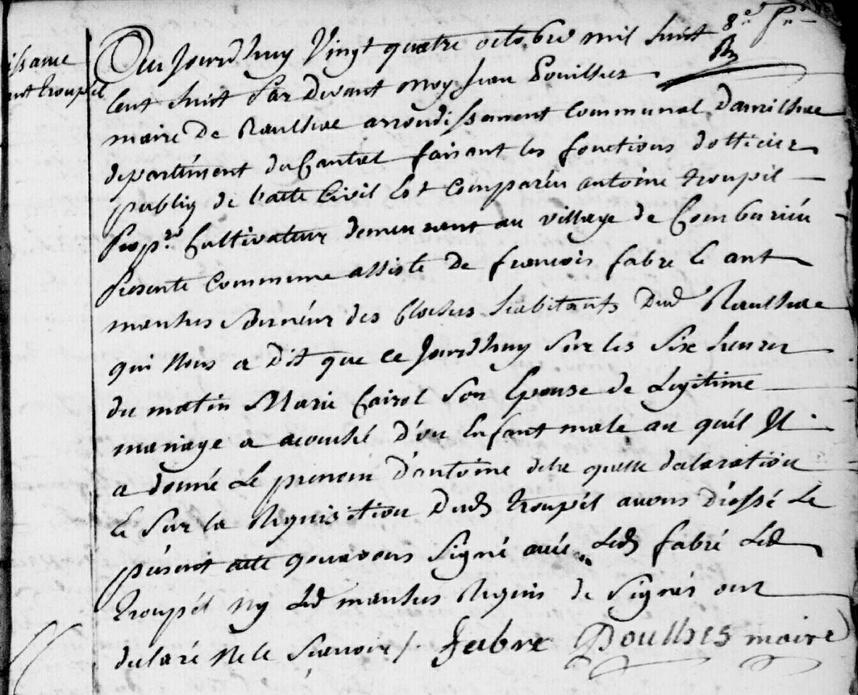 issance
ant troupel
Aujourdhuy Vingt quatre octobre mil huit
cent huit Par Devant moy Jean Pouilhes
maire de Raulhac arrondissement Communal Daurilhac
departement du Cantal faisant les fonctions dofficier
publiq de l'acte Civil Est Comparéu antoine troupel
prop.re Cultivateur demeurant au village de
presente Commune assisté de francois fabre
des Cloches habitants Dud Raulhac
qui Nous a Dit que ce Jourdhuy Sur les Six heures
du matin Marie Cairol Son Epouse de Legitime
mariage a acouché D'un Enfant male au quel Il
a donné Le prenom D'antoine de la quelle declaration
Et Sur la Requisition Dud troupel avons Dressé Le
présent acte qu'avons Signé avéc Led fabré Led
troupél Ny Led Requis de Signér ont
declaré Ne le Scavoir /. fabre Poulhes maire